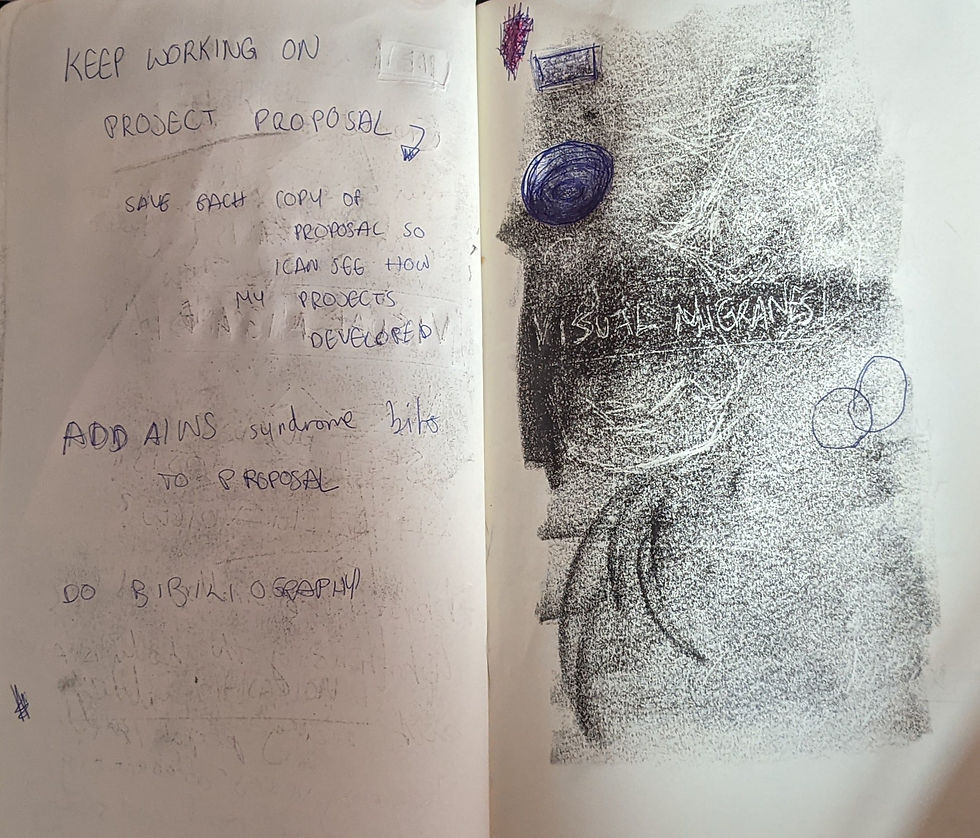 KEEP WORKING ON
PROJECT PROPOSAL
SAVE EACH COPY OF
PROPOSAL SO
I CAN SEE HOW
MY PROJECTS
DEVELOPED
ADD AIWS syndrome bits
TO PROPOSAL
DO BIBILIOGRAPHY
VISUAL